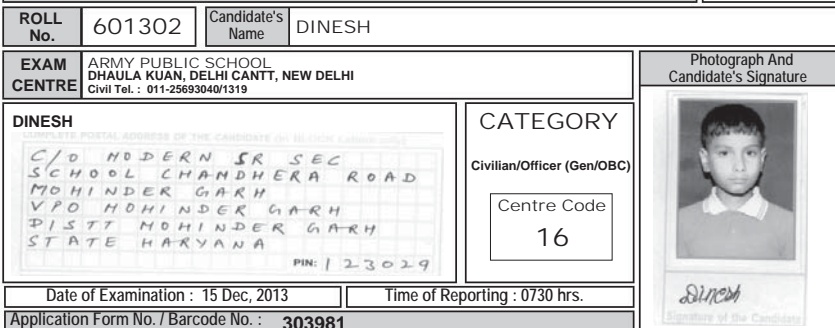 ROLL No. 601302 Candidate's Name DINESH
EXAM CENTRE
ARMY PUBLIC SCHOOL
DHAULA KUAN, DELHI CANTT, NEW DELHI
Civil Tel. : 011-25693040/1319
Photograph And
Candidate's Signature
DINESH
COMPLETE POSTAL ADDRESS OF THE CANDIDATE
C/O MODERN SR SEC
SCHOOL CHAMDHERA ROAD
MOHINDER GARH
VPO MOHINDER GARH
DISTT MOHINDER GARH
STATE HARYANA
PIN: 123029
CATEGORY
Civilian/Officer (Gen/OBC)
Centre Code
16
Dinesh
Signature of the Candidate
Date of Examination : 15 Dec, 2013 Time of Reporting : 0730 hrs.
Application Form No. / Barcode No. : 303981